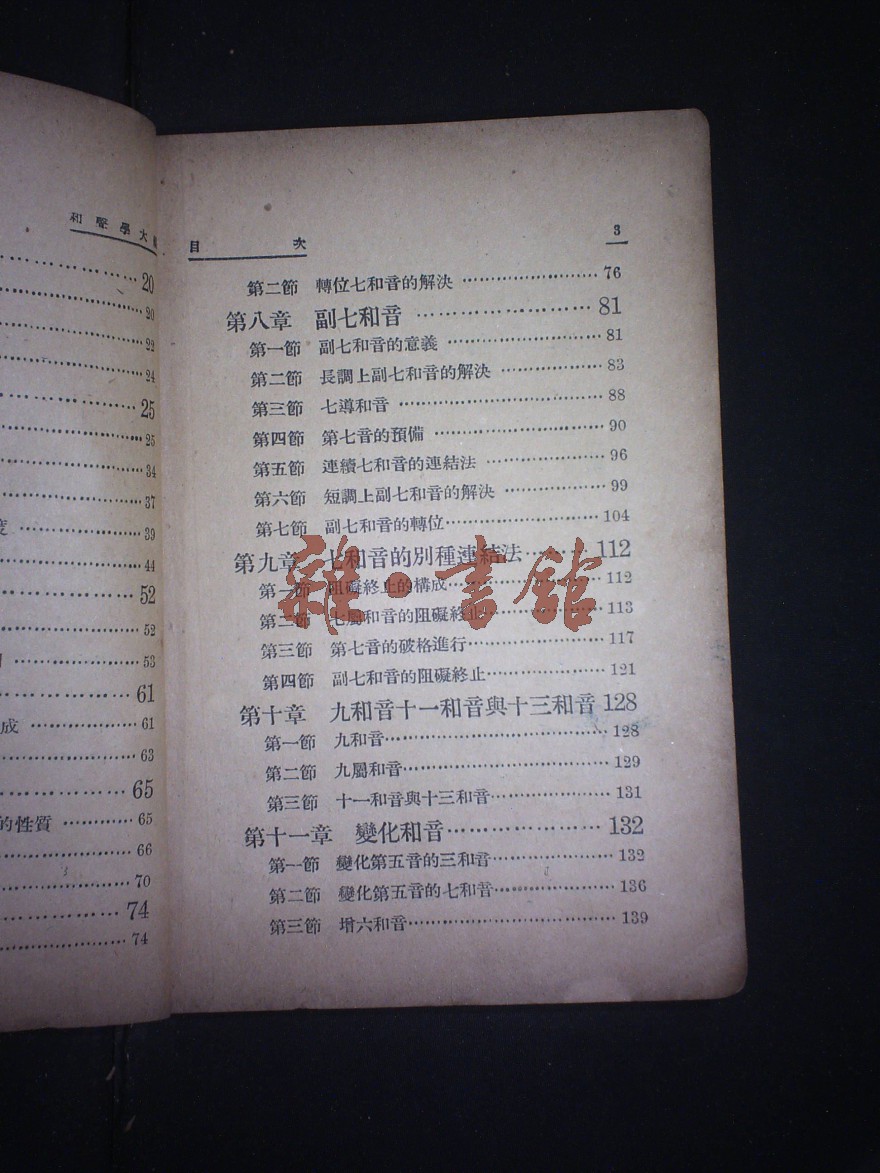 和聲學大
20
20
22
24
25
25
34
37
39
44
52
52
53
61
成 61
63
65
的性質 65
66
70
74
74
目 次 3
第二節 轉位七和音的解決 76
第八章 副七和音 81
第一節 副七和音的意義 81
第二節 長調上副七和音的解決 83
第三節 七導和音 88
第四節 第七音的預備 90
第五節 連續七和音的連結法 96
第六節 短調上副七和音的解決 99
第七節 副七和音的轉位 104
第九章 七和音的別種連結法 112
第一節 阻礙終止的構成 112
第二節 七屬和音的阻礙終止 113
第三節 第七音的破格進行 117
第四節 副七和音的阻礙終止 121
第十章 九和音十一和音與十三和音 128
第一節 九和音 128
第二節 九屬和音 129
第三節 十一和音與十三和音 131
第十一章 變化和音 132
第一節 變化第五音的三和音 132
第二節 變化第五音的七和音 136
第三節 增六和音 139
雜·書館